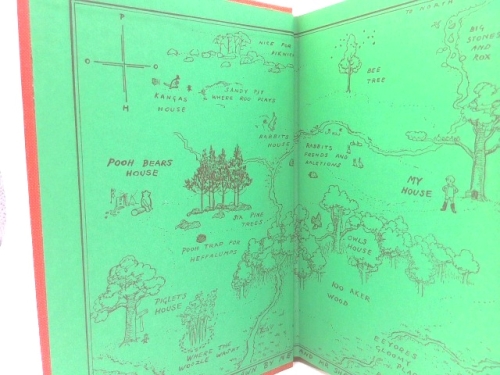 P
O
O
H
NICE FOR
PIKNICKS
TO NORTH
BIG
STONES
AND
ROX
BEE
TREE
KANGAS
HOUSE
SANDY PIT
WHERE ROO PLAYS
RABBITS
HOUSE
RABBITS
FRENDS AND
RALETIONS
POOH BEARS
HOUSE
MY
HOUSE
SIX PINE
TREES
POOH TRAP FOR
HEFFALUMPS
OWLS
HOUSE
PIGLETS
HOUSE
100 AKER
WOOD
WHERE THE
WOOZLE WASNT
EEYORES
GLOOMY PLACE
DRAWN BY ME
AND MR